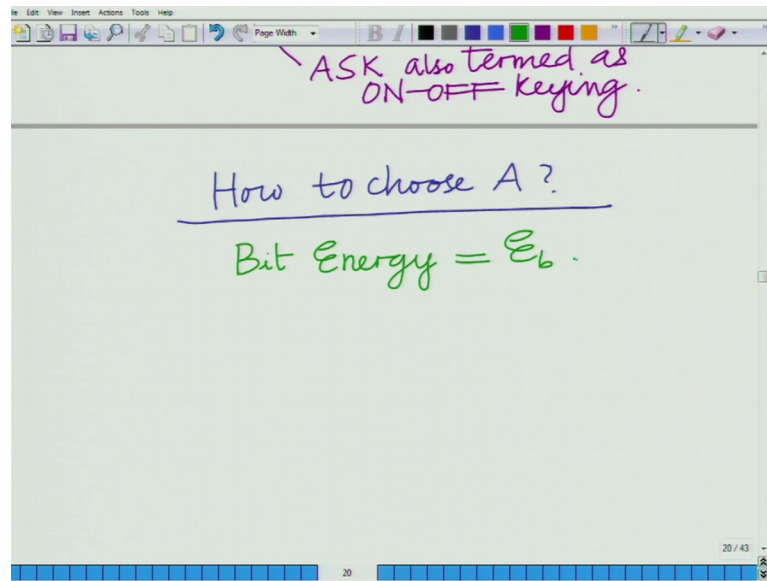 le Edit View Insert Actions Tools Help
Page Width
B I
ASK also termed as
ON-OFF Keying.
How to choose A?
Bit Energy = Eb.
20 / 43
20